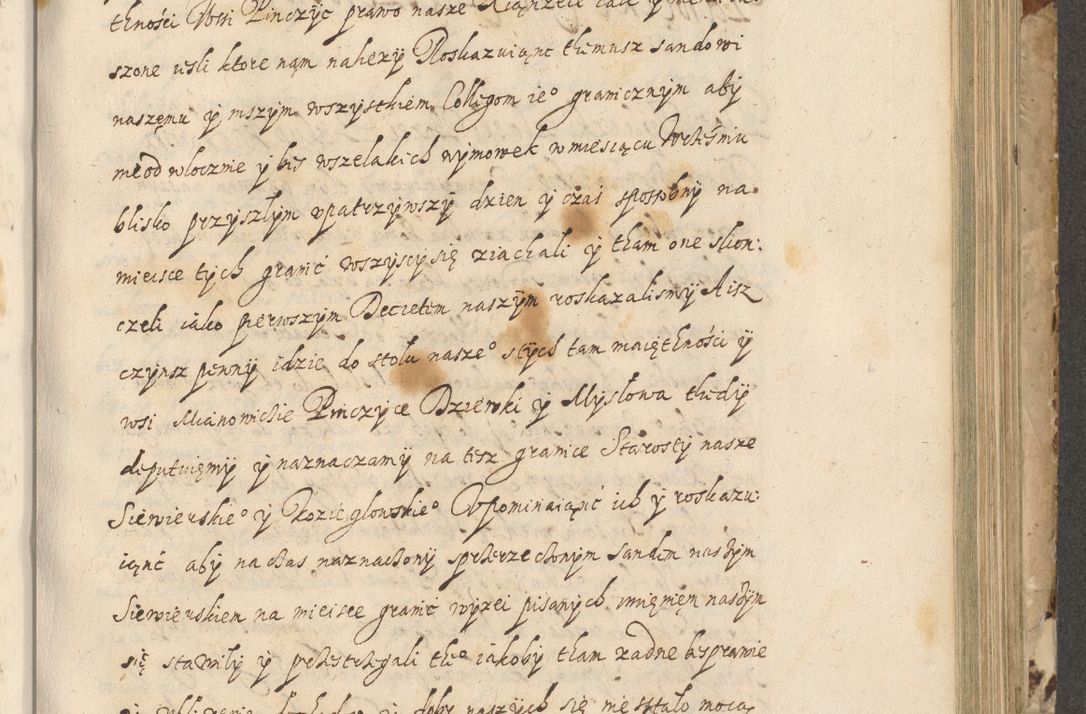 thności Wsi Pinczyc prawo nasze Xiąnzęce
szone iesli ktore nąm nalezy Roskazuiąnc themusz sandowi
naszęmu y inszym wszystkiem Collegom ie° granicznym aby
nieodwlocznie y bes wszelakich wymowek w miesiącu Wrzesniu
blisko przyszłym upatrzywszy dzien y czas sposobny na
mieisce tych granic wszyscy się ziachali y tham one skon:
czeli iako pierwszym Decretem naszym roskazalismy A isz
czynsz pewny idzie do stolu nasze° s tych tam maiętności y
wsi Mianowicie Pinczyce Dziewki y Mysłowa thedy
deputuięmy y naznaczamy na tesz granice Starosty nasze
Siewierskie° y Kozieglowskie° Upominaiąnc ich y roskazu:
iąnc aby na czas naznaczony przerzeczonym sandem naszym
Siewierskiem na mieisce granic wyzei pisanych imięnięm naszym
się stawily y przestrzegali the° iakoby tham zadne besprawie
y doby naszych się nie sstalo mocą